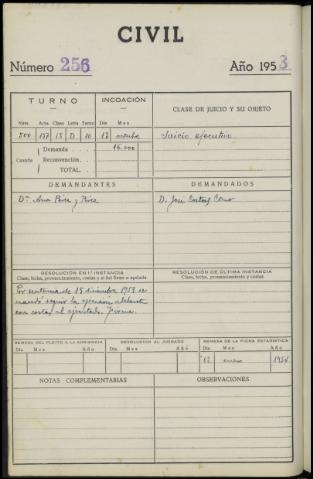 CIVIL
Número 256 Año 1953
TURNO INCOACIÓN CLASE DE JUICIO Y SU OBJETO
Núm. Acta Clase Letra Turno Día Mes
500 157 15 D 10 17 Juicio ejecutivo
Demanda 16.000
Cuantía Reconvención.
TOTAL.
DEMANDANTES DEMANDADOS
Dª Ana Pérez y Pérez D. José
RESOLUCIÓN EN 1ª INSTANCIA RESOLUCIÓN DE ÚLTIMA INSTANCIA
Clase, fecha, pronunciamiento, costas y si fué firme o apelada. Clase, fecha, pronunciamiento y costas
Por sentencia de 15 diciembre 1953 se
mandó seguir la ejecución adelante
con costas al ejecutado. Firme.
REMESA DEL PLEITO A LA AUDIENCIA RESOLUCIÓN AL JUZGADO REMESA DE LA FICHA ESTADÍSTICA
Día Mes Año Día Mes Año Día Mes Año
12 enero 1954
NOTAS COMPLEMENTARIAS OBSERVACIONES